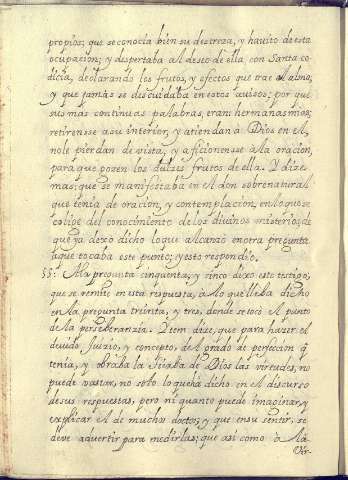 propios; que se conocia bien su destreza, y havito de esta
ocupacion; y dispertaba al deseo de ella, con Santa co-
dicia, declarando los frutos, y efectos que trae al alma,
y que jamás se descuidaba en estos cursos; por que
sus más continuas palabras, eran: hermanas mias;
retirense a su interior, y atiendan à Dios en él,
no le pierdan de vista, y aficionense à la oracion,
para que gozen los dulzes frutos de ella. Y dize
mas; que se manifestaba en el don sobrenatural
que tenia de oracion, y contemplacion, en lo que se
colige del conocimiento de los divinos misterios, de
que ya dexo dicho lo que alcanzo en otra pregunta
a que tocaba este punto; y esto respondio.
55. A la pregunta cinquenta, y cinco dixo este testigo,
que se remite en esta respuesta, à lo que lleba dicho
en la pregunta treinta, y tres, donde se tocò el punto
de la perseberanzia. Y tem dize, que para hazer el
devido Juizio, y concepto, del grado de perfeccion q̃
tenia, y obraba la Sierba de Dios las virtudes, no
puede vastar, no solo lo que ha dicho en el discurso
de sus respuestas, pero ni quanto puede imaginar, y
explicar el de muchos doctos; y que en su sentir, se
deve advertir para medirlas; que asi como à la
Vir-